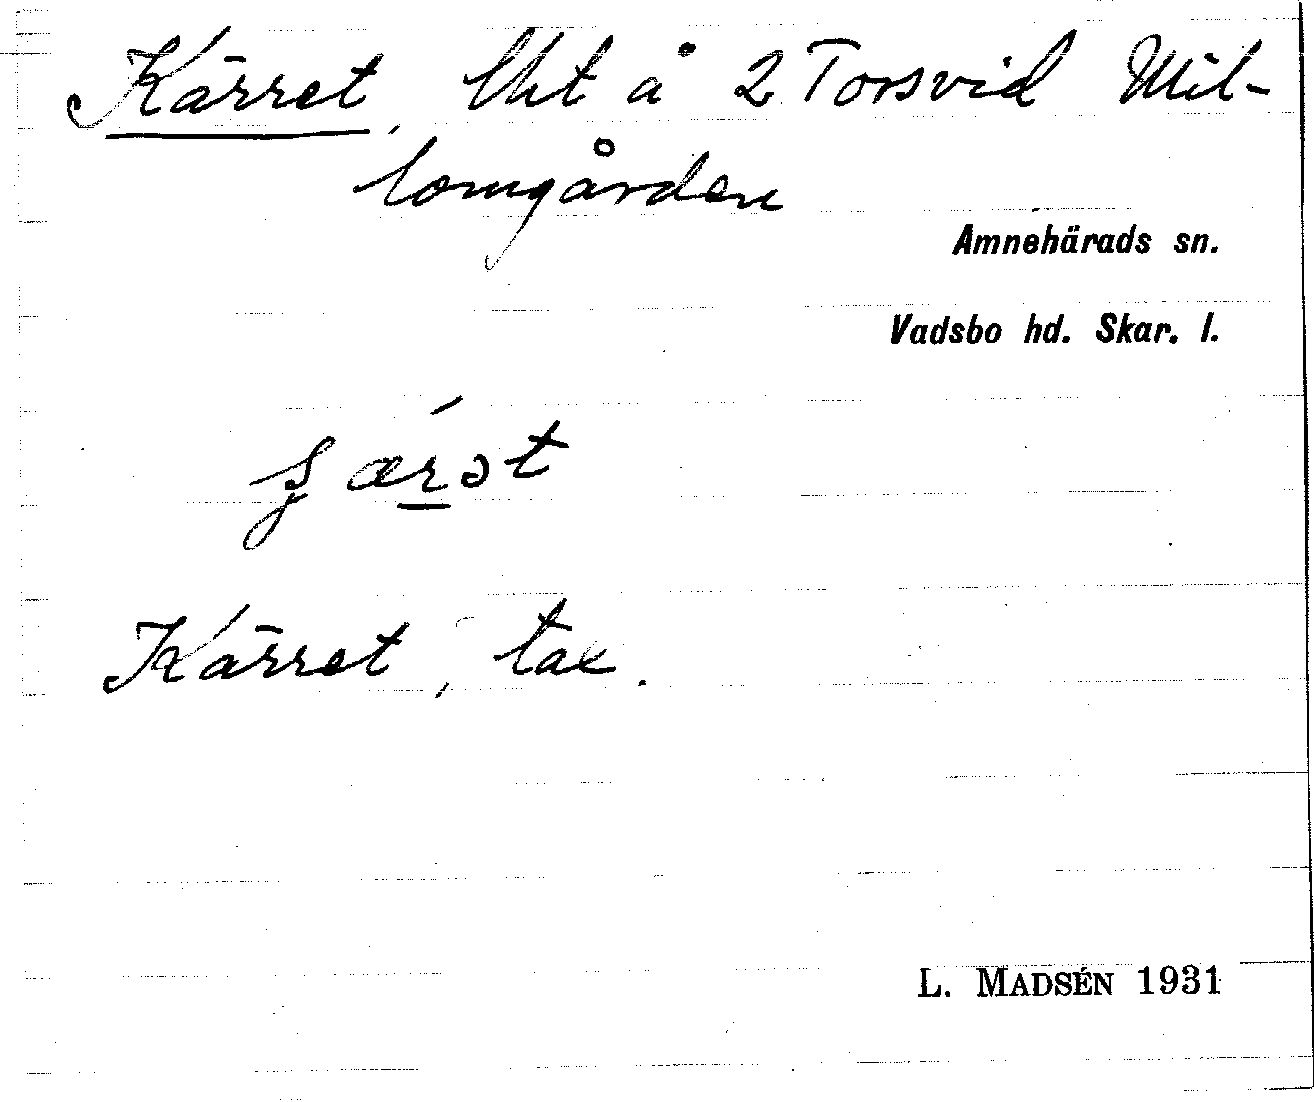 Kärret, lht å 2 Torsvid Mel-
lomgården
Amnehärads sn.
Vadsbo hd. Skar. l.
Kärret, tax.
L. MADSÉN 1931